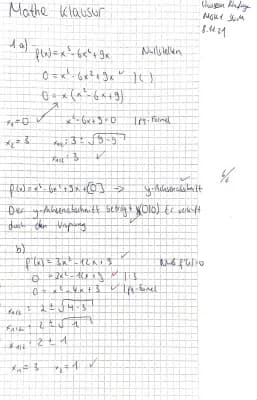 Mathe Klausur
8.11.21
1 a)
f(x) = x³-6x²+9x Nullstellen
0 = x³-6x²+9x ✓ | ( )
0 = x(x²-6x+9)
x₁=0 ✓ x²-6x+9=0 | pq-Formel
x₂ = 3 x₁₁₂ = 3 ± √9-9
x₁₁₂ = 3 ✓
f(x) = x³-6x²+9x+[0] → y-Achsenabschnitt
Der y-Achsenabschnitt beträgt (0|0) Er verläuft
durch den Ursprung
b)
f'(x) = 3x²-12x+9 ✓
0 = 3x²-12x+9 ✓ | :3
0 = x²-4x+3 ✓ | pq-Formel
x₁₁₂ = 2 ± √4-3
x₁₁₂ = 2 ± √1
x₁₁₂ = 2 ± 1
x₁ = 3 x₂ = 1 ✓